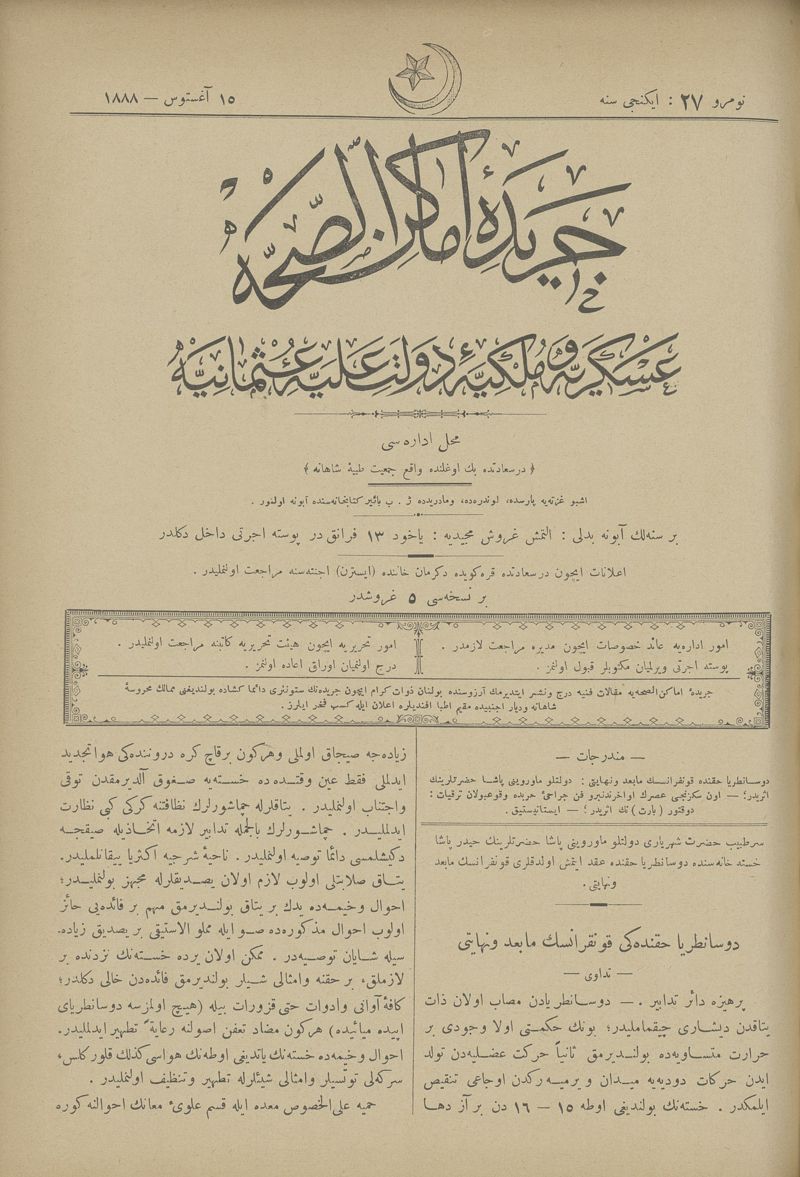 نومرو ٢٧ : ایكنجی سنه
١٥ آغستوس — ١٨٨٨
جریدهٔ اماكن الصحه
عسكریه و ملكیهٔ دولت علیهٔ عثمانیه
محل اداره سی
﴿ درسعادتده بك اوغلنده واقع جمعیت طبیهٔ شاهانه ﴾
اشبو غزته‌یه پارسده، لوندره‌ده، ومادریدده ژ . ب بائیر كتابخانه‌سنده آبونه اولنور .
بر سنه‌لك آبونه بدلی : التمش غروش مجیدیه : یاخود ١٣ فرانق در پوسته اجرتی داخل دكلدر
اعلانات ایچون درسعادتده قره كویده دكرمان خاننده (ایسترن) اجنته‌سنه مراجعت اولنملیدر .
بر نسخه‌سی ٥ غروشدر
امور اداره‌یه عائد خصوصات ایچون مدیره مراجعت لازمدر .
پوسته اجرتی ویرلمیان مكتوبلر قبول اولنمز .
امور تحریریه ایچون هیئت تحریریه كاتبنه مراجعت اولنملیدر .
درج اولنمیان اوراق اعاده اولنمز .
جریدهٔ اماكن‌الصحه‌یه مقالات فنیه درج ونشر ایتدیرمك آرزوسنده بولنان ذوات كرام ایچون جریده‌نك ستونلری دائما كشاده بولندیغنی ممالك محروسهٔ
شاهانه ودیار اجنبیده مقیم اطبا افندیلره اعلان ایله كسب فخر ایلرز .
— مندرجات —
دوسانطریا حقنده قونفرانسك مابعد ونهایتی : دولتلو ماورویی پاشا حضرتلرینك
اثریدر؛ — اون سكزنجی عصرك اواخرندنبرو فن جراحیٔ حربده وقوعبولان ترقیات :
دوقتور (بارث) نك اثریدر؛ — ایستاتیستیق .
سرطبیب حضرت شهریاری دولتلو ماورویی پاشا حضرتلرینك حیدر پاشا
خسته خانه‌سنده دوسانطریا حقنده عقد ایتمش اولدقلری قونفرانسك مابعد
ونهایتی .
دوسانطریا حقنده‌كی قونفرانسك مابعد ونهایتی
— تداوی —
پرهیزه دائر تدابیر . — دوسانطریادن مصاب اولان ذات
یتاقدن دیشاری چیقماملیدر؛ بونك حكمتی اولا وجودی بر
حرارت متساویه‌ده بولندیرمق ثانیاً حركت عضلیه‌دن تولد
ایدن حركات دودیه‌یه میدان ویرمیه‌ركدن اوجاعی تنقیص
ایلمكدر . خسته‌نك بولندیغی اوطه ١٥ — ١٦ دن بر آز دها
زیاده‌جه صیجاق اولملی وهركون برقاچ كره دروننده‌كی هوا تجدید
ایدلملی فقط عین وقتده ده خسته‌یه صغوق آلدیرمقدن توقی
واجتناب اولنملیدر . یتاقلرله چماشورلرك نظافتنه كركی كبی نظارت
ایدلملیدر . چماشورلرك بالجمله تدابیر لازمه اتخاذیله صیقجه
دكیشلمسی دائما توصیه اولنملیدر . ناحیهٔ شرجیه اكثریا ییقانلملیدر.
یتاق صلابتلی اولوب لازم اولان یصدیقلرله مجهز بولنملیدر؛
احوال وخیمه‌ده یدك بر یتاق بولندیرمق مهم بر فائده‌یی حائز
اولوب احوال مذكوره‌ده صو ایله مملو الاستیقی بر یصدیق زیاده.
سیله شایان توصیه‌در . ممكن اولان یرده خسته‌نك نزدنده بر
لازملق، بر حقنه وامثالی شیلر بولندیرمق فائده‌دن خالی دكلدر؛
كافهٔ اوانی وادوات حتی قزورات بیله (هیچ اولمزسه دوسانطریای
اپیده میائیده) هركون مضاد تعفن اصولنه رعایةً تطهیر ایدلملیدر.
احوال وخیمه‌ده خسته‌نك یاتدیغی اوطه‌نك هواسی كذلك قلوركلس،
سركه‌لی توتسیلر وامثالی شیئلرله تطهیر وتنظیف اولنملیدر .
حمیه علی‌الخصوص معده ایله قسم علویٔ معانك احوالنه كوره